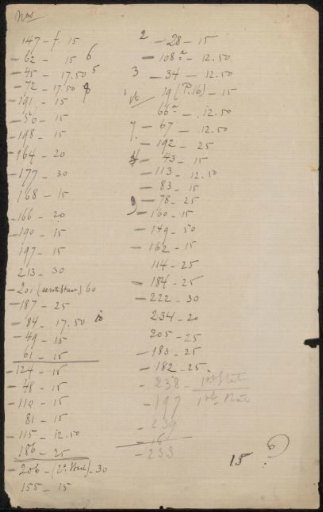 Nos
147 - f. 15
- 62 - 15 6
- 45 - 17.50 5
- 72 - 17.50 8
- 191 - 15
- 50 - 15
- 198 - 15
- 164 - 20
- 177 - 30
- 168 - 15
- 166 - 20
- 190 - 15
- 197 - 15
213 - 30
- 201 60
- 187 - 25
- 84 - 17.50
- 49 - 15
61 - 15
- 124 - 15
- 48 - 15
- 110 - 15
81 - 15
- 115 - 12.50
186 - 25
- 206 - (2e State) - 30
155 - 15
2 - 28 - 15
- 108a - 12.50
3 - 34 - 12.50
19 (P. 16) - 15
66a - 12.50
7 - 67 - 12.50
- 192 - 25
4 - 43 - 15
- 113 - 12.50
- 83 - 15
9 - 78 - 25
- 100 - 15
- 149 - 50
- 162 - 15
114 - 25
- 184 - 25
- 222 - 30
234 - 20
205 - 25
- 183 - 25
- 182 - 25
- 238 - 1st State
- 197 1st State
- 239
- 233
15